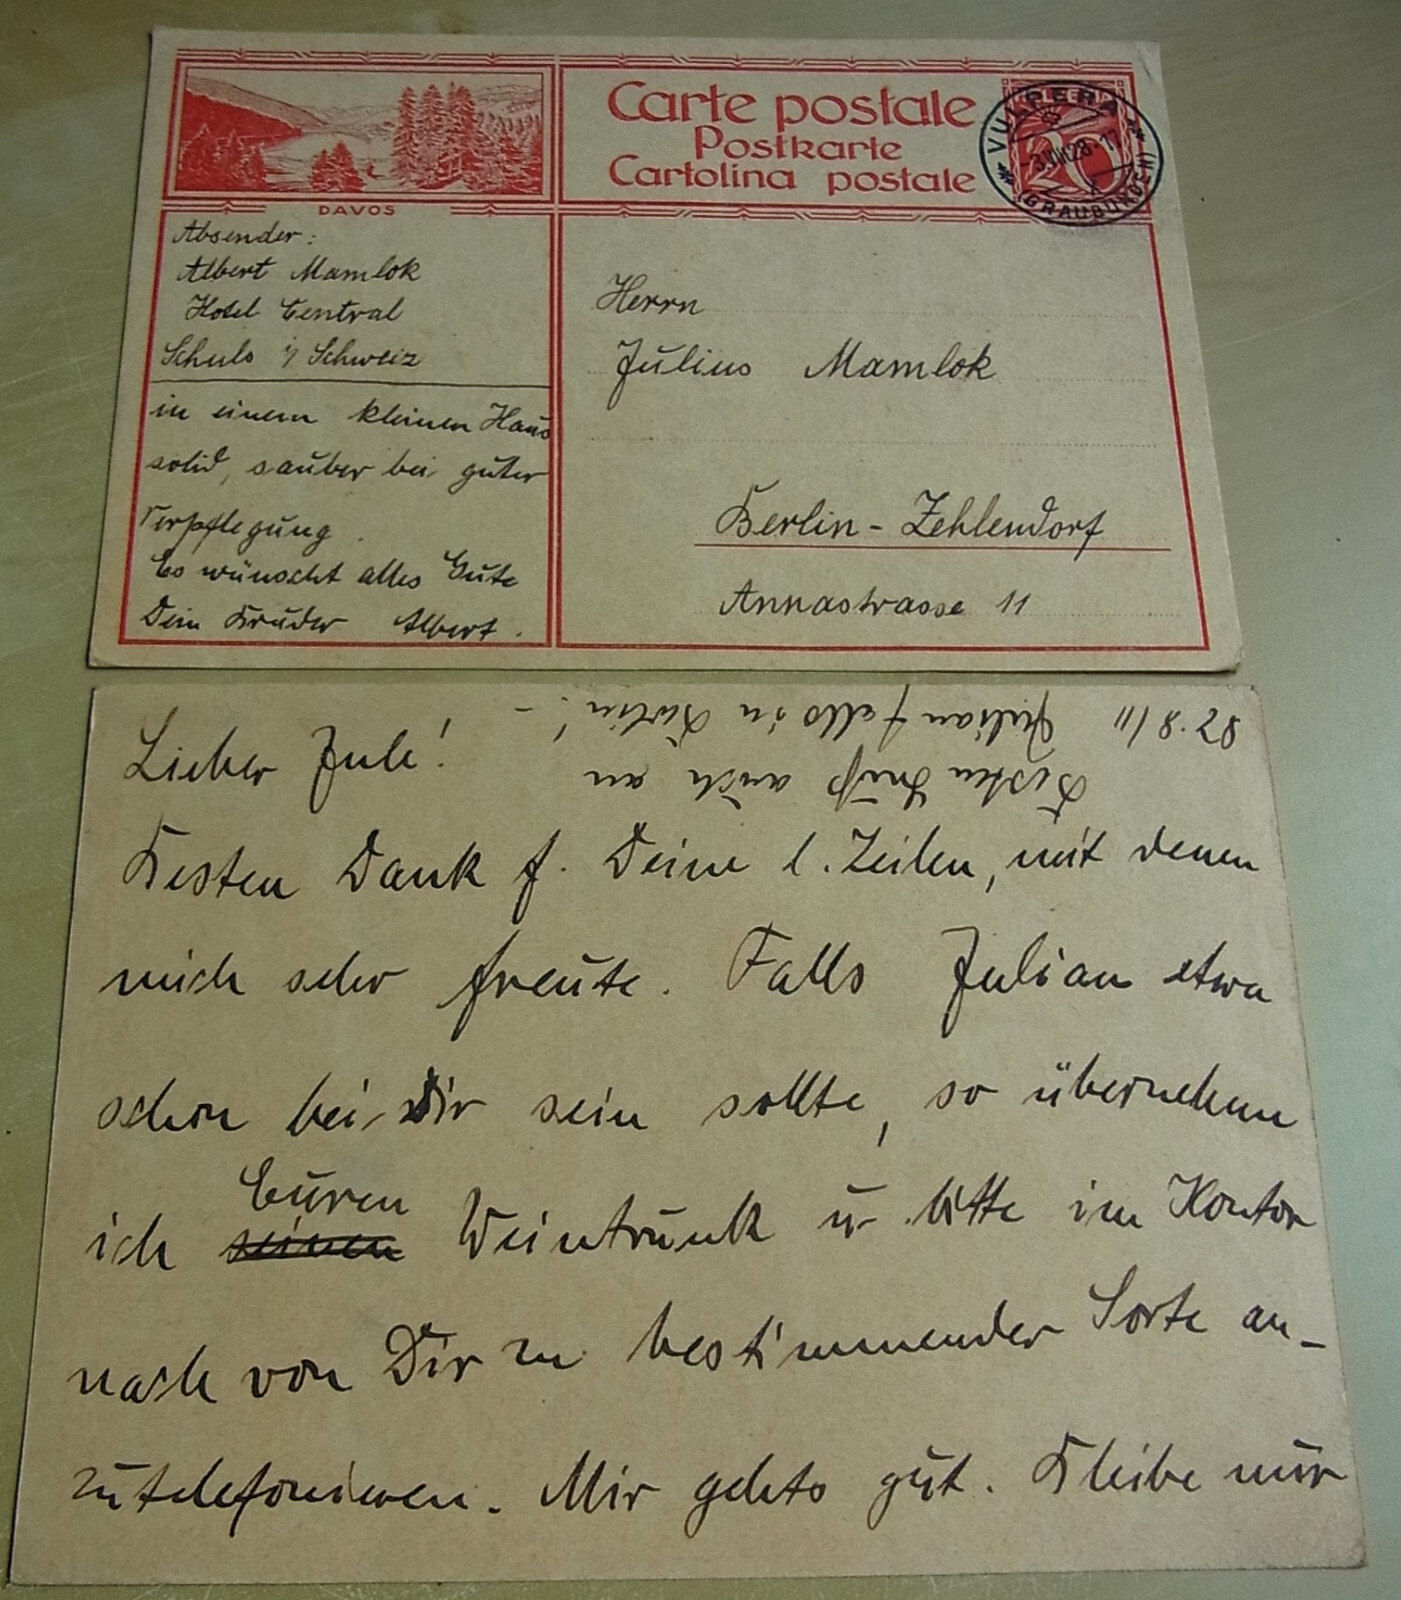 Carte postale
Postkarte
Cartolina postale
DAVOS
VULPERA
(GRAUBÜNDEN)
Absender:
Albert Mamlok
Hotel Central
Schuls i/ Schweiz
in einem kleinen Haus
solid, sauber bei guter
Verpflegung.
Es wünscht alles Gute
Dein Bruder Albert.
Herrn
Julius Mamlok
Berlin-Zehlendorf
Annastrasse 11
Besten Gruß auch an
Julian falls in Berlin! –
Lieber Jule!
Besten Dank f. Deine l. Zeilen, mit denen
mich sehr freute. Falls Julian etwa
schon bei Dir sein sollte, so übernehme
ich Euren Weintrunk u. bitte im Kontor
nach von Dir zu bestimmender Sorte an-
zutelefonieren. Mir gehts gut. Bleibe nur